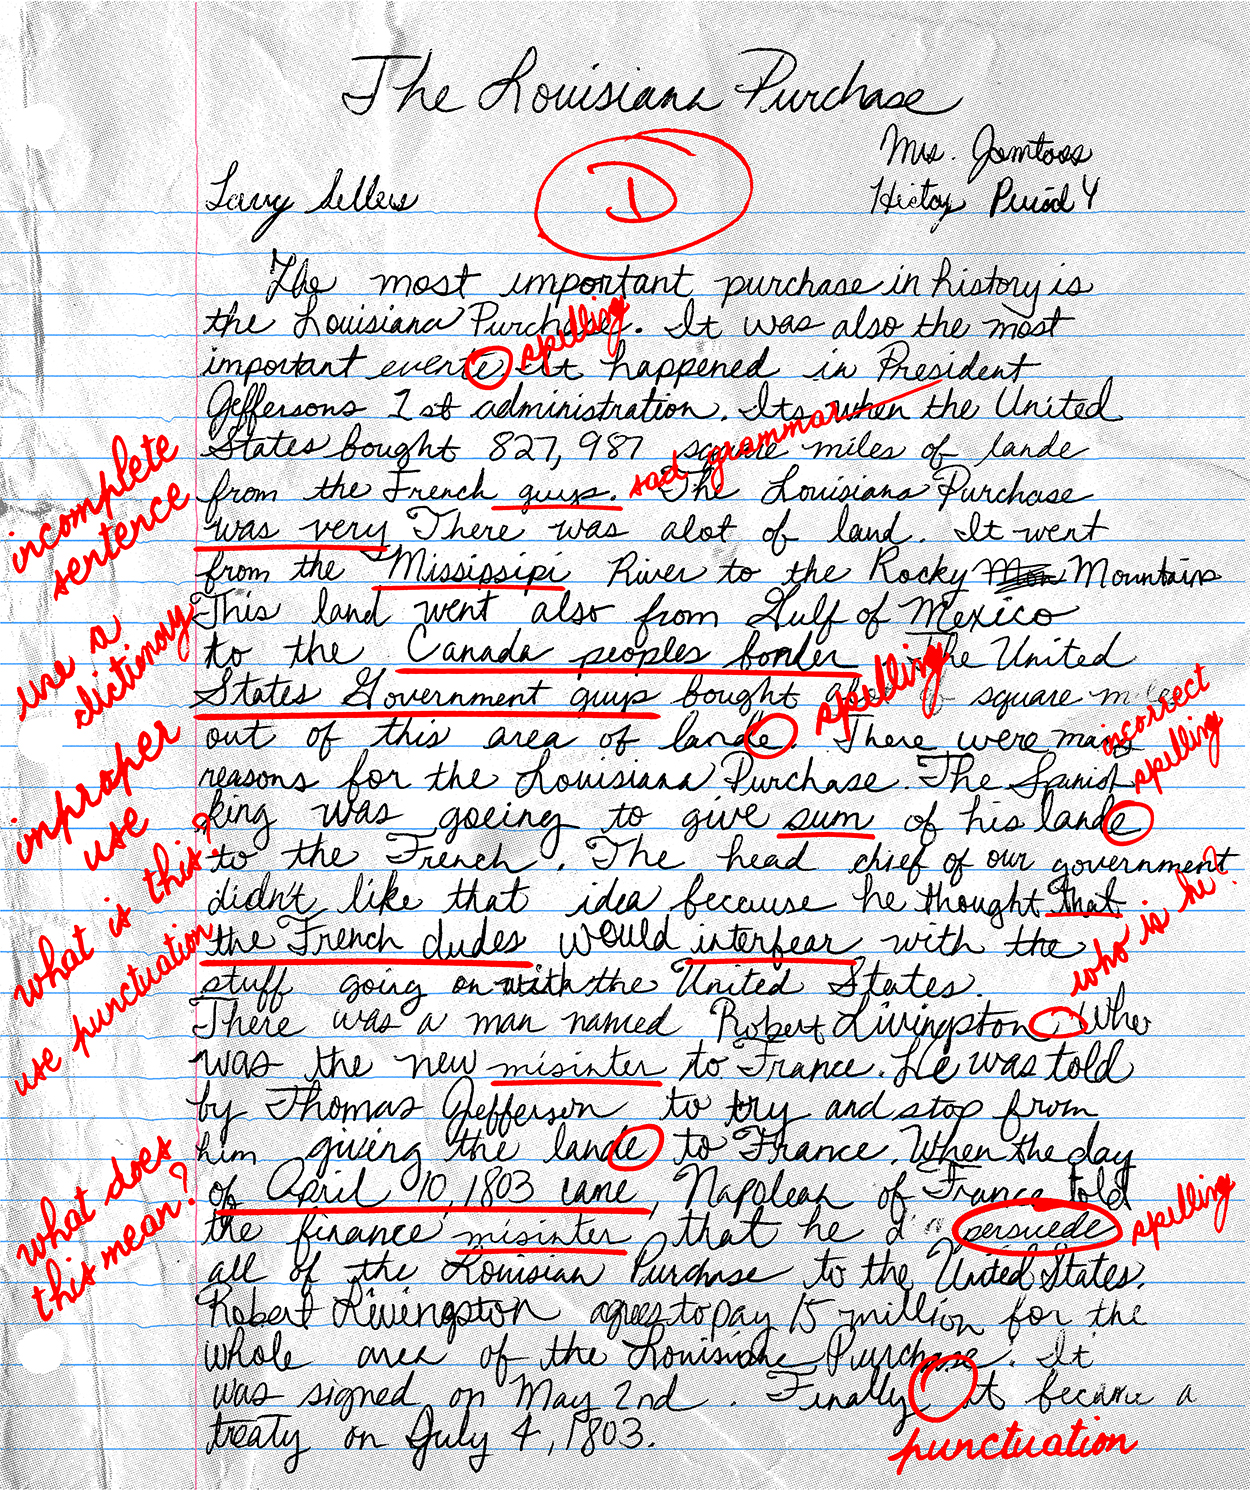 The Louisiana Purchase
Mrs. Jamtoss
Larry Sellers
D
History Period 4
The most important purchase in history is
the Louisiana Purchase. It was also the most
spelling
important evente It happened in President
Jeffersons 1st administration. Its when the United
States bought 827,987 square miles of lande
sad grammar
from the French guys. The Louisiana Purchase
incomplete
sentence
was very There was alot of land. It went
from the Mississipi River to the Rocky Mountains
This land went also from Gulf of Mexico
use a
dictionary
to the Canada peoples border The United
spelling
States Government guys bought alot of square miles
out of this area of lande. There were many
incorrect
spelling
improper
use
reasons for the Louisiana Purchase. The Spanish
king was goeing to give sum of his lande
to the French. The head chief of our government
what is this?
didn't like that idea because he thought that
who is he?
the French dudes would interfear with the
use punctuation
stuff going on with the United States.
There was a man named Robert Livingston Who
was the new misinter to France. He was told
by Thomas Jefferson to try and stop from
him giving the lande to France. When the day
what does
this mean?
of April 10, 1803 came, Napolean of France told
the finance misinter that he persuede
spelling
all of the Louisian Purchase to the United States.
Robert Livingston agrees to pay 15 million for the
whole area of the Purchase. It
was signed on May 2nd. Finally it became a
punctuation
treaty on July 4, 1803.